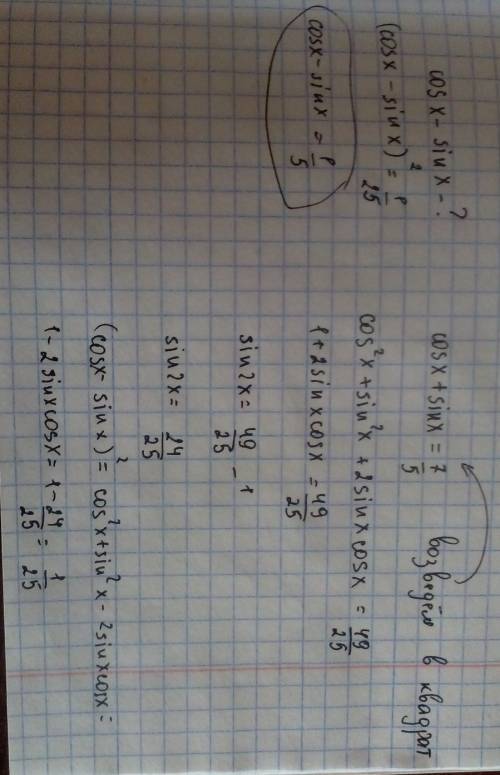 cosx - sinx - ?
(cosx - sinx)² = 1/25
cosx - sinx = 1/5
cosx + sinx = 7/5 возведём в квадрат
cos²x + sin²x + 2sinxcosx = 49/25
1 + 2sinxcosx = 49/25
sin2x = 49/25 - 1
sin2x = 24/25
(cosx - sinx)² = cos²x + sin²x - 2sinxcosx =
1 - 2sinxcosx = 1 - 24/25 = 1/25